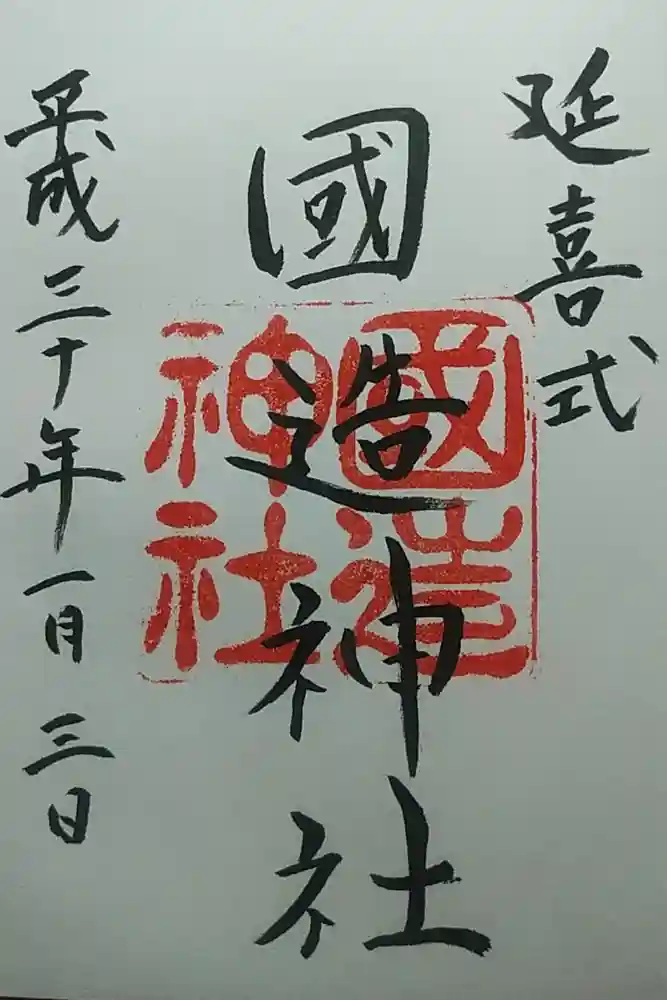 延喜式
國造神社
國造神社
平成三十年一月三日